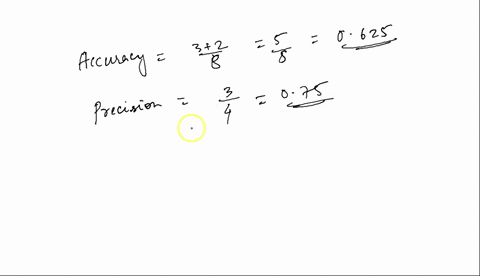 Accuracy = 3+2/8 = 5/8 = 0.625
Precision = 3/4 = 0.75